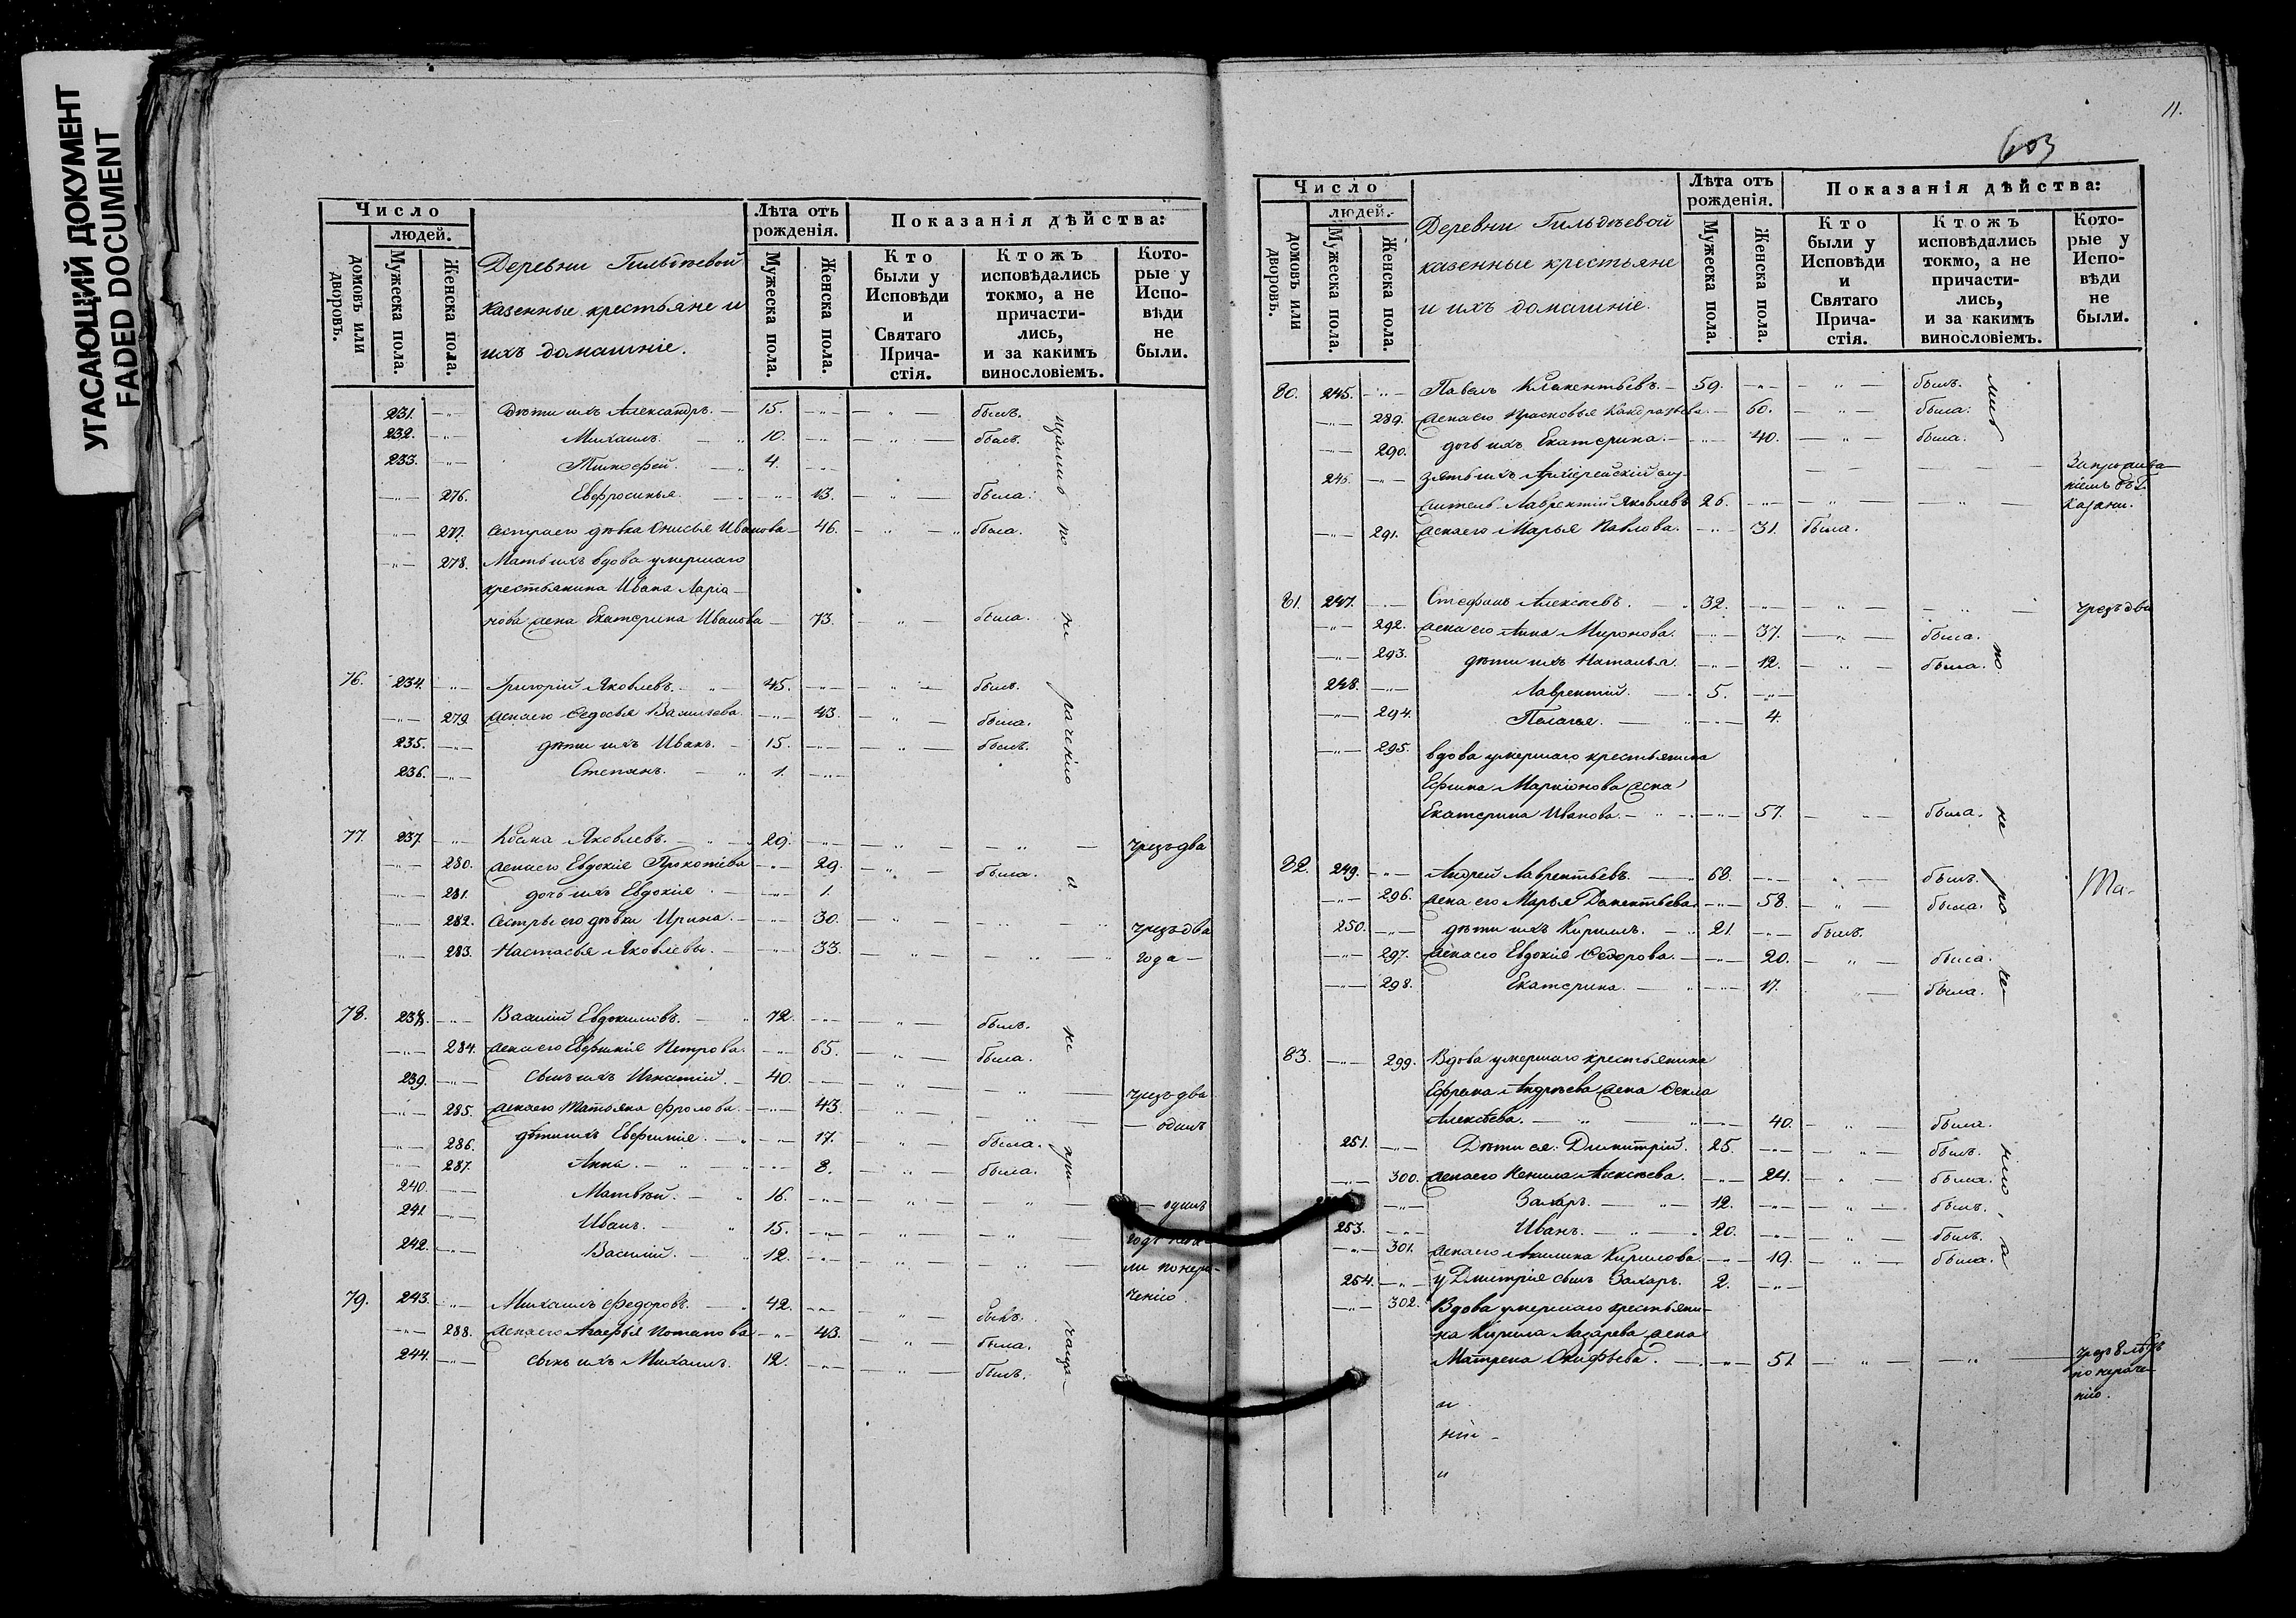 УГАСАЮЩИЙ ДОКУМЕНТ
FADED DOCUMENT
Число
людей.
домовъ или дворовъ.
Мужеска пола.
Женска пола.
Деревни Гильдѣевой
казенные крестьяне и
ихъ домашніе.
Лѣта отъ
рожденія.
Мужеска пола.
Женска пола.
Показанія дѣйства:
Кто
были у
Исповѣди
и
Святаго
Прича-
стія.
Ктожъ
исповѣдались
токмо, а не
причасти-
лись,
и за какимъ
винословіемъ.
Кото-
рые у
Испо-
вѣди
не
были.
231. Дѣти ихъ Александръ. 15. былъ.
232. Михаилъ. 10. былъ.
233. Тимофей. 4.
276. Евфросинья. 13. была.
277. Сестра его дѣвка Онисья Иванова 46. была.
278. Мать ихъ вдова умершаго
крестьянина Ивана Ларіо-
нова жена Екатерина Иванова 73. была.
76. 234. Григорій Яковлевъ. 45. былъ.
279. жена его Федосья Васильева. 43. была.
235. дѣти ихъ Иванъ. 15. былъ.
236. Степанъ. 1.
77. 237. Козма Яковлевъ. 29. чрезъ два
280. жена его Евдокія Прокопьева 29. была.
281. дочь ихъ Евдокія 1.
282. Сестры его дѣвки Ирина. 30. чрезъ два
283. Настасья Яковлевы. 33. года
78. 238. Василій Евдокимовъ. 72. былъ.
284. жена его Евфимія Петрова. 65. была.
239. сынъ ихъ Игнатій. 40. чрезъ два
285. жена его Татьяна Фролова. 43. одинъ
286. дѣти ихъ Евфимія. 17. была.
287. Анна. 8. была.
240. Матвѣй. 16. одинъ
241. Иванъ. 15. годъ
242. Василій. 12. ли по нера-
79. 243. Михаилъ Федоровъ. 42. былъ. ченію.
288. жена его Агафья Потапова 43. была.
244. сынъ ихъ Михаилъ. 12. былъ.
по
не
раченію
а
не
при
чаща-
11.
603
Число
людей.
домовъ или дворовъ.
Мужеска пола.
Женска пола.
Деревни Гильдѣевой
казенные крестьяне
и ихъ домашніе.
Лѣта отъ
рожденія.
Мужеска пола.
Женска пола.
Показанія дѣйства:
Кто
были у
Исповѣди
и
Святаго
Прича-
стія.
Ктожъ
исповѣдались
токмо, а не
причасти-
лись,
и за какимъ
винословіемъ.
Кото-
рые у
Испо-
вѣди
не
были.
80. 245. Павелъ 59. былъ.
289. жена его Прасковья Кондратьева. 60. была.
290. дочь ихъ Екатерина. 40. была.
246. зять ихъ Архіерейскій слу-
житель Лаврентій Яковлевъ 26. Казани.
291. жена его Марья Павлова. 31. была.
81. 247. Стефанъ Алексѣевъ. 32. чрезъ два
292. жена его Анна Миронова. 37. была.
293. дѣти ихъ Наталья. 12. была.
248. Лаврентій. 5.
294. Палагья. 4.
295. вдова умершаго крестьянина
Ефима Маркіонова жена
Екатерина Иванова. 57. была.
82. 249. Андрей Лаврентьевъ. 68. былъ.
296. жена его Марья 58. была.
250. дѣти ихъ Кирилъ. 21. былъ.
297. жена его Евдокія Федорова. 20. была.
298. Екатерина. 17. была.
83. 299. Вдова умершаго крестьянина
Ефрема Андрѣева жена Фекла
Алексѣева. 40. была.
251. Дѣти ея: Димитрій. 25. былъ.
300. жена его Ненила Алексѣева. 24. была.
Захаръ. 12. былъ.
253. Иванъ. 20. былъ.
301. жена его Акилина Кирилова. 19. была.
254. у Дмитрія сынъ Захаръ. 2.
302. Вдова умершаго крестьяни-
на Кирила Лазарева жена
Матрена 51. чрезъ
по нераче-
нію.
по
не
ра
че
нію